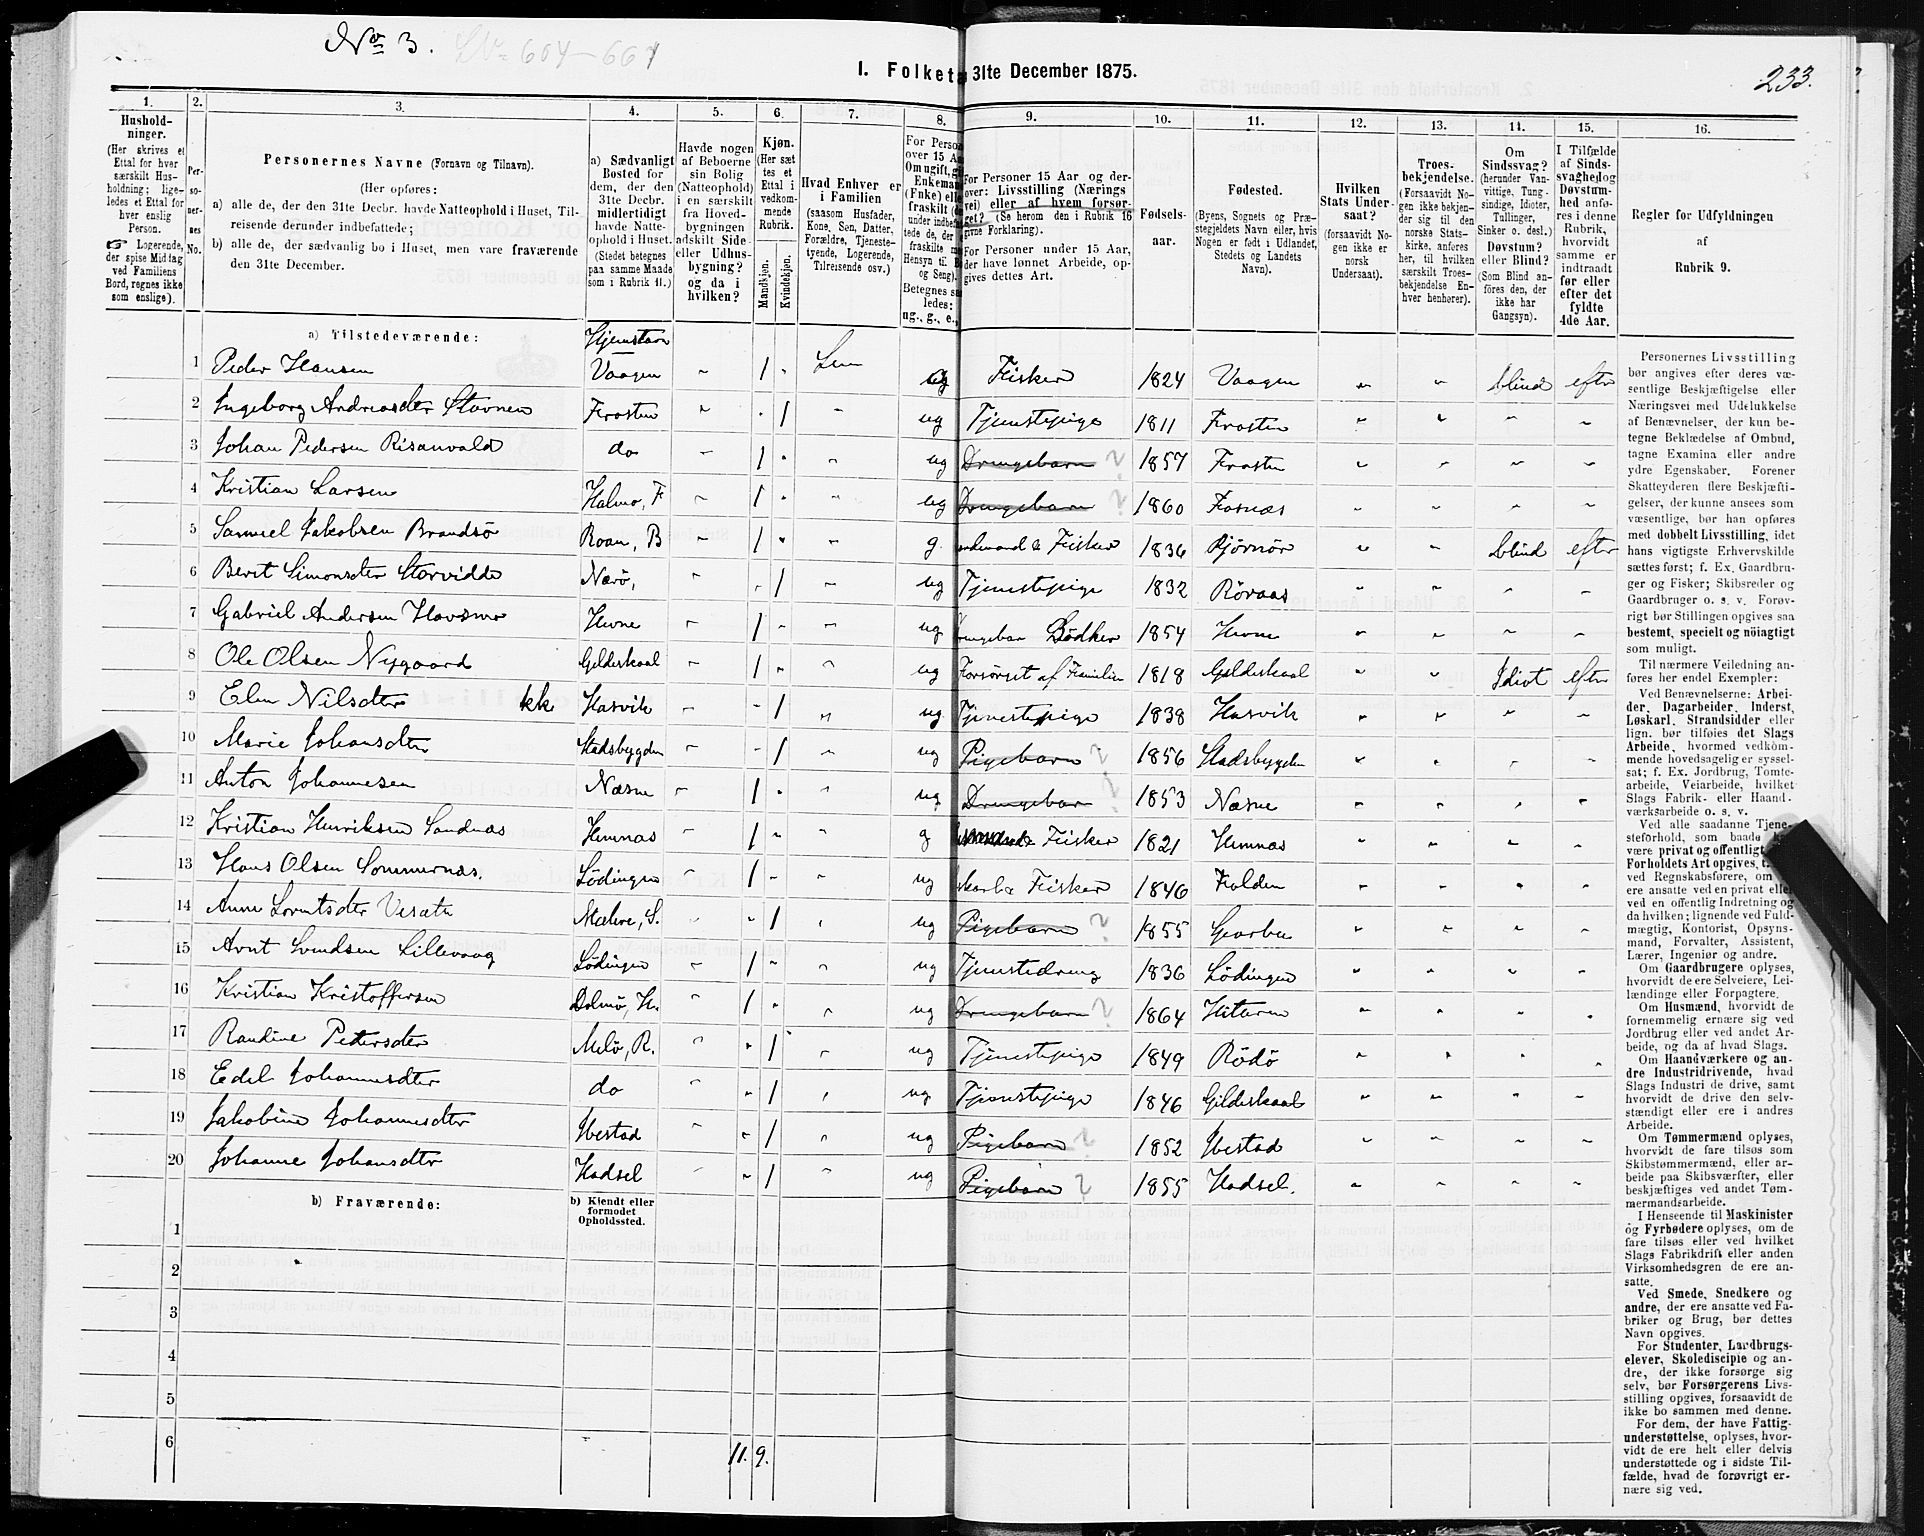 No 3. No 604-661
I. Folket 31te December 1875.
233.
1. 2. 3. 4. 5. 6. 7. 8. 9. 10. 11. 12. 13. 14. 15. 16.
Hushold-
ninger.
(Her skrives et
Ettal for hver
særskilt Hus-
holdning; lige-
ledes et Ettal for
hver enslig
Person.
Logerende,
der spise Middag
ved Familiens
Bord, regnes ikke
som enslige).
Per-
so-
ner-
nes
No.
Personernes Navne (Fornavn og Tilnavn).
(Her opføres:
a) alle de, der den 31te Decbr. havde Natteophold i Huset, Til-
reisende derunder indbefattede;
b) alle de, der sædvanlig bo i Huset, men vare fraværende
den 31te December.
a) Sædvanligt
Bosted for
dem, der den
31te Decbr.
midlertidigt
havde Natte-
ophold i Huset.
(Stedet betegnes
paa samme Maade
som i Rubrik 11.)
Havde nogen
af Beboerne
sin Bolig
(Natteophold)
i en særskilt
fra Hoved-
bygningen
adskilt Side-
eller Udhus-
bygning?
og da i
hvilken?
Kjøn.
(Her sæt-
tes et
Ettal i
vedkom-
mende
Rubrik.
Mandkjøn.
Kvindekjøn.
Hvad Enhver er
i Familien
(saasom Husfader,
Kone, Søn, Datter,
Forældre, Tjeneste-
tyende, Logerende,
Tilreisende osv.)
For Person
over 15 A
Om ugift, g
Enkeman
(Enke) elle
fraskilt
under indbef
tede de, der
fraskilte m
Hensyn til B
og Seng).
Betegnes s
ledes:
ug., g., e.,
For Personer 15 Aar og der-
over: Livsstilling (Nærings
vei) eller af hvem forsør-
get? (Se herom den i Rubrik 16
givne Forklaring).
For Personer under 15 Aar,
der have lønnet Arbeide, op-
gives dettes Art.
Fødsels-
aar.
Fødested.
(Byens, Sognets og Præ-
stegjeldets Navn eller, hvis
Nogen er født i Udlandet,
Stedets og Landets
Navn).
Hvilken
Stats Under-
saat?
(forsaavidt No-
gen ikke er
norsk
Undersaat).
Troes-
bekjendelse.
(Forsaavidt No-
gen ikke bekjen-
der sig til den
norske Stats-
kirke, anføres
her, til hvilken
særskilt Troes-
bekjendelse En-
hver henhører).
Om
Sindssvag?
(herunder Van-
vittige, Tung-
sindige, Idioter,
Tullinger,
Sinker o. desl.)
Døvstum?
eller Blind?
(Som Blind an-
føres den, der
ikke har
Gangsyn).
I Tilfælde
af Sinds-
svaghed og
Døvstum-
hed anfø-
res i denne
Rubrik,
hvorvidt
samme er
indtraadt
før eller
efter det
fyldte
4de Aar.
Regler for Udfyldningen
af
Rubrik 9.
a) Tilstedeværende:
Hjemstavn
1 Peder Hansen Vaagen 1 Lem ug Fisker 1824 Vaagen blind efter
2 Ingeborg Andreasdter Stavnen Frosten 1 ug Tjenestepige 1811 Frosten
3 Johan Pedersen Risanvald do 1 ug Drengebarn ? 1857 Frosten
4 Kristian Larsen Halmø, F 1 ug Drengebarn ? 1860 Fosnæs
5 Samuel Jakobsen Brandsø Roan, B 1 g. Fisker 1836 Bjørnør blind efter
6 Berit Simonsdter Storvidde Nærø, 1 ug Tjenestepige 1832 Røraas
7 Gabriel Andersen Hevne 1 ug Bødker 1854 Hevne
8 Ole Olsen Nygaard Gildeskaal 1 ug Forsørget af Familien 1818 Gildeskaal Idiot efter
9 Elen Nilsdter kk Hasvik 1 ug Tjenestepige 1838 Hasvik
10 Marie Johansdter Stadsbygden 1 ug Pigebarn ? 1856 Stadsbygden
11 Anton Johannesen Næsne 1 ug Drengebarn ? 1853 Næsne
12 Kristian Henriksen Sandnæs Hemnæs 1 g Fisker 1821 Hemnæs
13 Hans Olsen Sommernæs. Lødingen 1 ug Fisker 1846 Folden
14 Anne Lorntsdter 1 ug Pigebarn ? 1855
15 Arnt Svendsen Lillevaag Lødingen 1 ug Tjenestedreng 1836 Lødingen
16 Kristian Kristoffersen Dolmø, H. 1 ug Drengebarn ? 1864 Hitteren
17 Randine Petersdter Melø, R. 1 ug Tjenestepige 1849 Rødø
18 Edel Johannesdter do 1 ug Tjenestepige 1846 Gildeskaal
19 Jakobine Johannesdter Ibestad 1 ug Pigebarn ? 1852 Ibestad
20 Johanne Johansdter Hadsel 1 ug Pigebarn ? 1855 Hadsel.
b) Fraværende:
b) Kjendt eller
formodet
Opholdssted.
1
2
3
4
5
6
11. 9.
Personernes Livsstilling
bør angives efter deres væ-
sentlige Beskjæftigelse eller
Næringsvei med Udelukkelse
af Benævnelser, der kun be-
tegne Beklædelse af Ombud,
tagne Examina eller andre
ydre Egenskaber. Forener
Skatteyderen flere Beskjæfti-
gelser, der kunne ansees som
væsentlige, bør han opføres
med dobbelt Livsstilling, idet
hans vigtigste Erhvervskilde
sættes først; f. Ex. Gaardbru-
ger og Fisker; Skibsreder og
Gaardbruger o. s. v. Forøv-
rigt bør Stillingen opgives saa
bestemt, specielt og nöiagtigt
som muligt.
Til nærmere Veiledning an-
føres her endel Exempler:
Ved Benævnelserne: Arbei-
der, Dagarbeider, Inderst,
Løskarl, Strandsidder eller
lign. bør tilføies det Slags
Arbeide, hvormed vedkom-
mende hovedsagelig er syssel-
sat; f. Ex. Jordbrug, Tomte-
arbeide, Veiarbeide, hvilket
Slags Fabrik- eller Haand-
værksarbeide o. s. v.
Ved alle saadanne Tjene-
steforhold, som baade
være privat og offentligt
Forholdets Art opgives,
ved Regnskabsførere, om
ere ansatte ved en privat eller
ved en offentlig Indretning og
da hvilken; lignende ved Fuld-
mægtig, Kontorist, Opsyns-
mand, Forvalter, Assistent,
Lærer, Ingeniør og andre.
Om Gaardbrugere oplyses,
hvorvidt de ere Selveiere, Lei-
lændinge eller Forpagtere.
Om Husmænd, hvorvidt de
fornemmelig ernære sig ved
Jordbrug eller ved andet Ar-
beide, og da af hvad Slags.
Om Haandværkere og an-
dre Industridrivende, hvad
Slags Industri de drive, samt
hvorvidt de drive den selv-
stændigt eller ere i andres
Arbeide.
Om Tømmermænd oplyses,
hvorvidt de fare tilsøs som
Skibstømmermænd, eller ar-
beide paa Skibsværfter, eller
beskjæftiges ved andet Tøm-
mermandsarbeide.
I Henseende til Maskinister
og Fyrbødere oplyses, om de
fare tilsøs eller ved hvilket
Slags Fabrikdrift eller anden
Virksomhedsgren de ere an-
satte.
Ved Smede, Snedkere og
andre, der ere ansatte ved Fa-
briker og Brug, bør dettes
Navn opgives.
For Studenter, Landbrugs-
elever, Skoledisciple og an-
dre, der ikke forsørge sig
selv, bør Forsørgerens Livs-
stilling opgives, forsaavidt de
ikke bo sammen med denne.
For dem, der have Fattig-
understøttelse, oplyses, hvor-
vidt de ere helt eller delvis
understøttede og i sidste Til-
fælde, hvad de forøvrigt er-
nære sig ved.